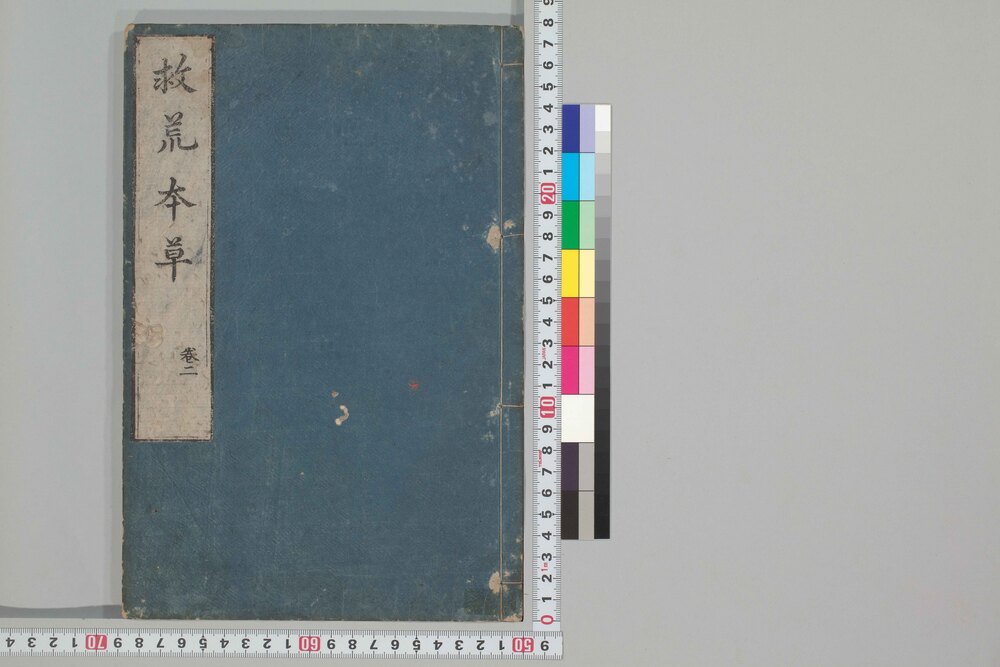 救荒本草
巻二